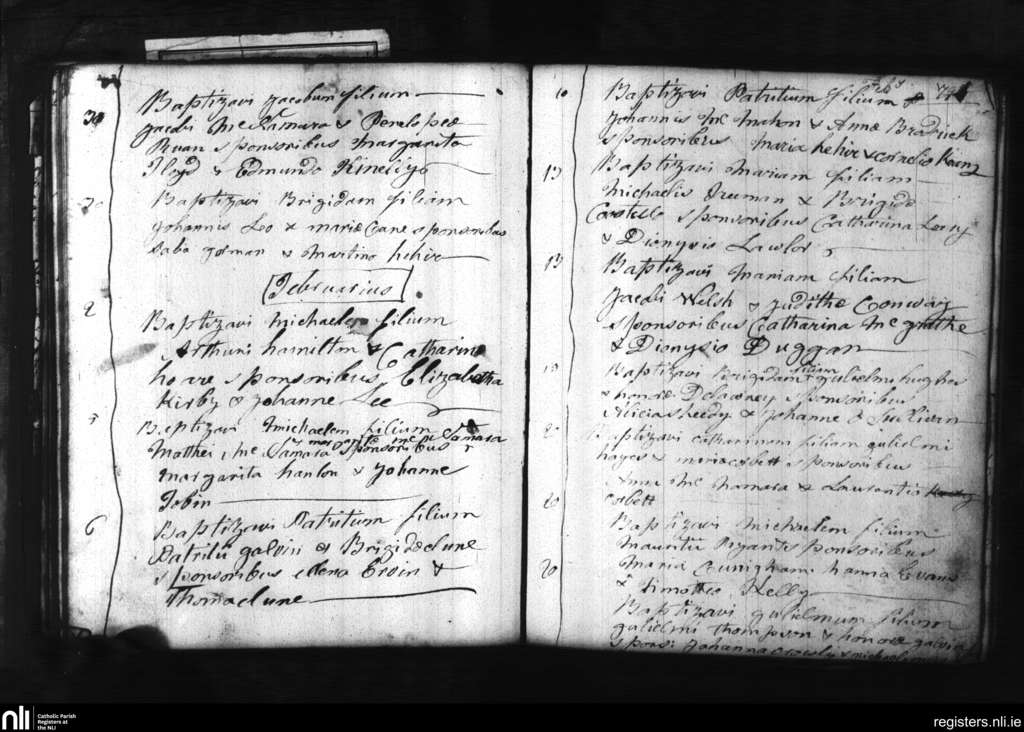 30
Baptizavi Jacobum filium
Jacobi McNamara & Penelopeæ
Ruan sponsoribus Margarita
Floyd & Edmundo
30
Baptizavi Brigidam filiam
Johannis Leo & Mariæ Cane sponsoribus
Saba Gorman & Martino Hehir
Februarius
2
Baptizavi Michaelem filium
Arthuri Hamilton & Catharinæ
Hoare sponsoribus Elizabetha
Kirby & Johanne Lee
Baptizavi Michaelem filium
Mathei McNamara & Margaritæ McNamara sponsoribus
Margarita Hanlon & Johanne
Tobin
6
Baptizavi Patritium filium
Patritii Galvin & Brigidæ Clune
sponsoribus Elena Ervin &
Thoma Clune
Feby
10
Baptizavi Patritium filium
Johannis McMahon & Annæ Brodrick
sponsoribus Maria Hehir & Cornelio
13
Baptizavi Mariam filiam
Michaelis & Brigidæ
Costello sponsoribus Catharina
& Dionysio Lawlor
13
Baptizavi Mariam filiam
Jacobi Welsh & Judithæ Conway
sponsoribus Catharina McGrathe
& Dionysio Duggan
Baptizavi Brigidam filiam Gulielmi Hughes
& Honoræ Delawney sponsoribus
Alicia Sheedy & Johanne
Baptizavi Catharinam filiam Gulielmi
Hayes & Maria Corbett sponsoribus
Anna McNamara & Laurentio
Corbett
Baptizavi Michaelem filium
Mauritii Ryan sponsoribus
20
Maria Cunigham Hanna Evans
& Timotheo Kelly
Baptizavi Gulielmum filium
Gulielmi Thompson & Honoræ Galvin
spons: Johanna
nli
Catholic Parish
Registers at
the NLI
registers.nli.ie